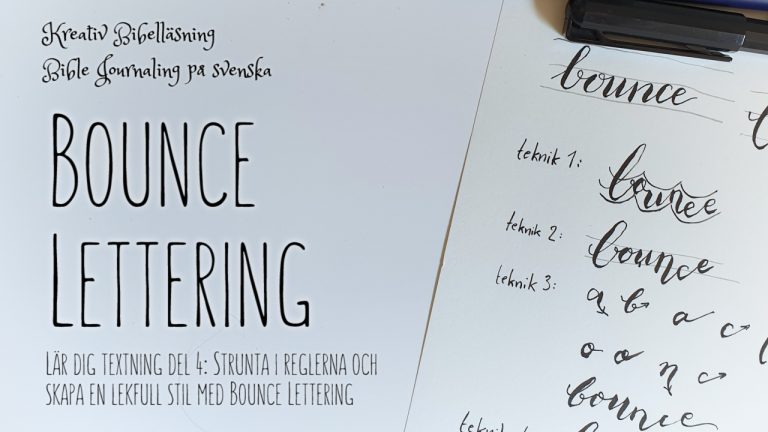 Kreativ Bibelläsning
Bible Journaling på svenska
BOUNCE
LETTERING
LÄR DIG TEXTNING DEL 4: STRUNTA I REGLERNA OCH
SKAPA EN LEKFULL STIL MED BOUNCE LETTERING
bounce
teknik 1:
bounce
teknik 2:
bounce
teknik 3:
a b a c
o o n c
bounce